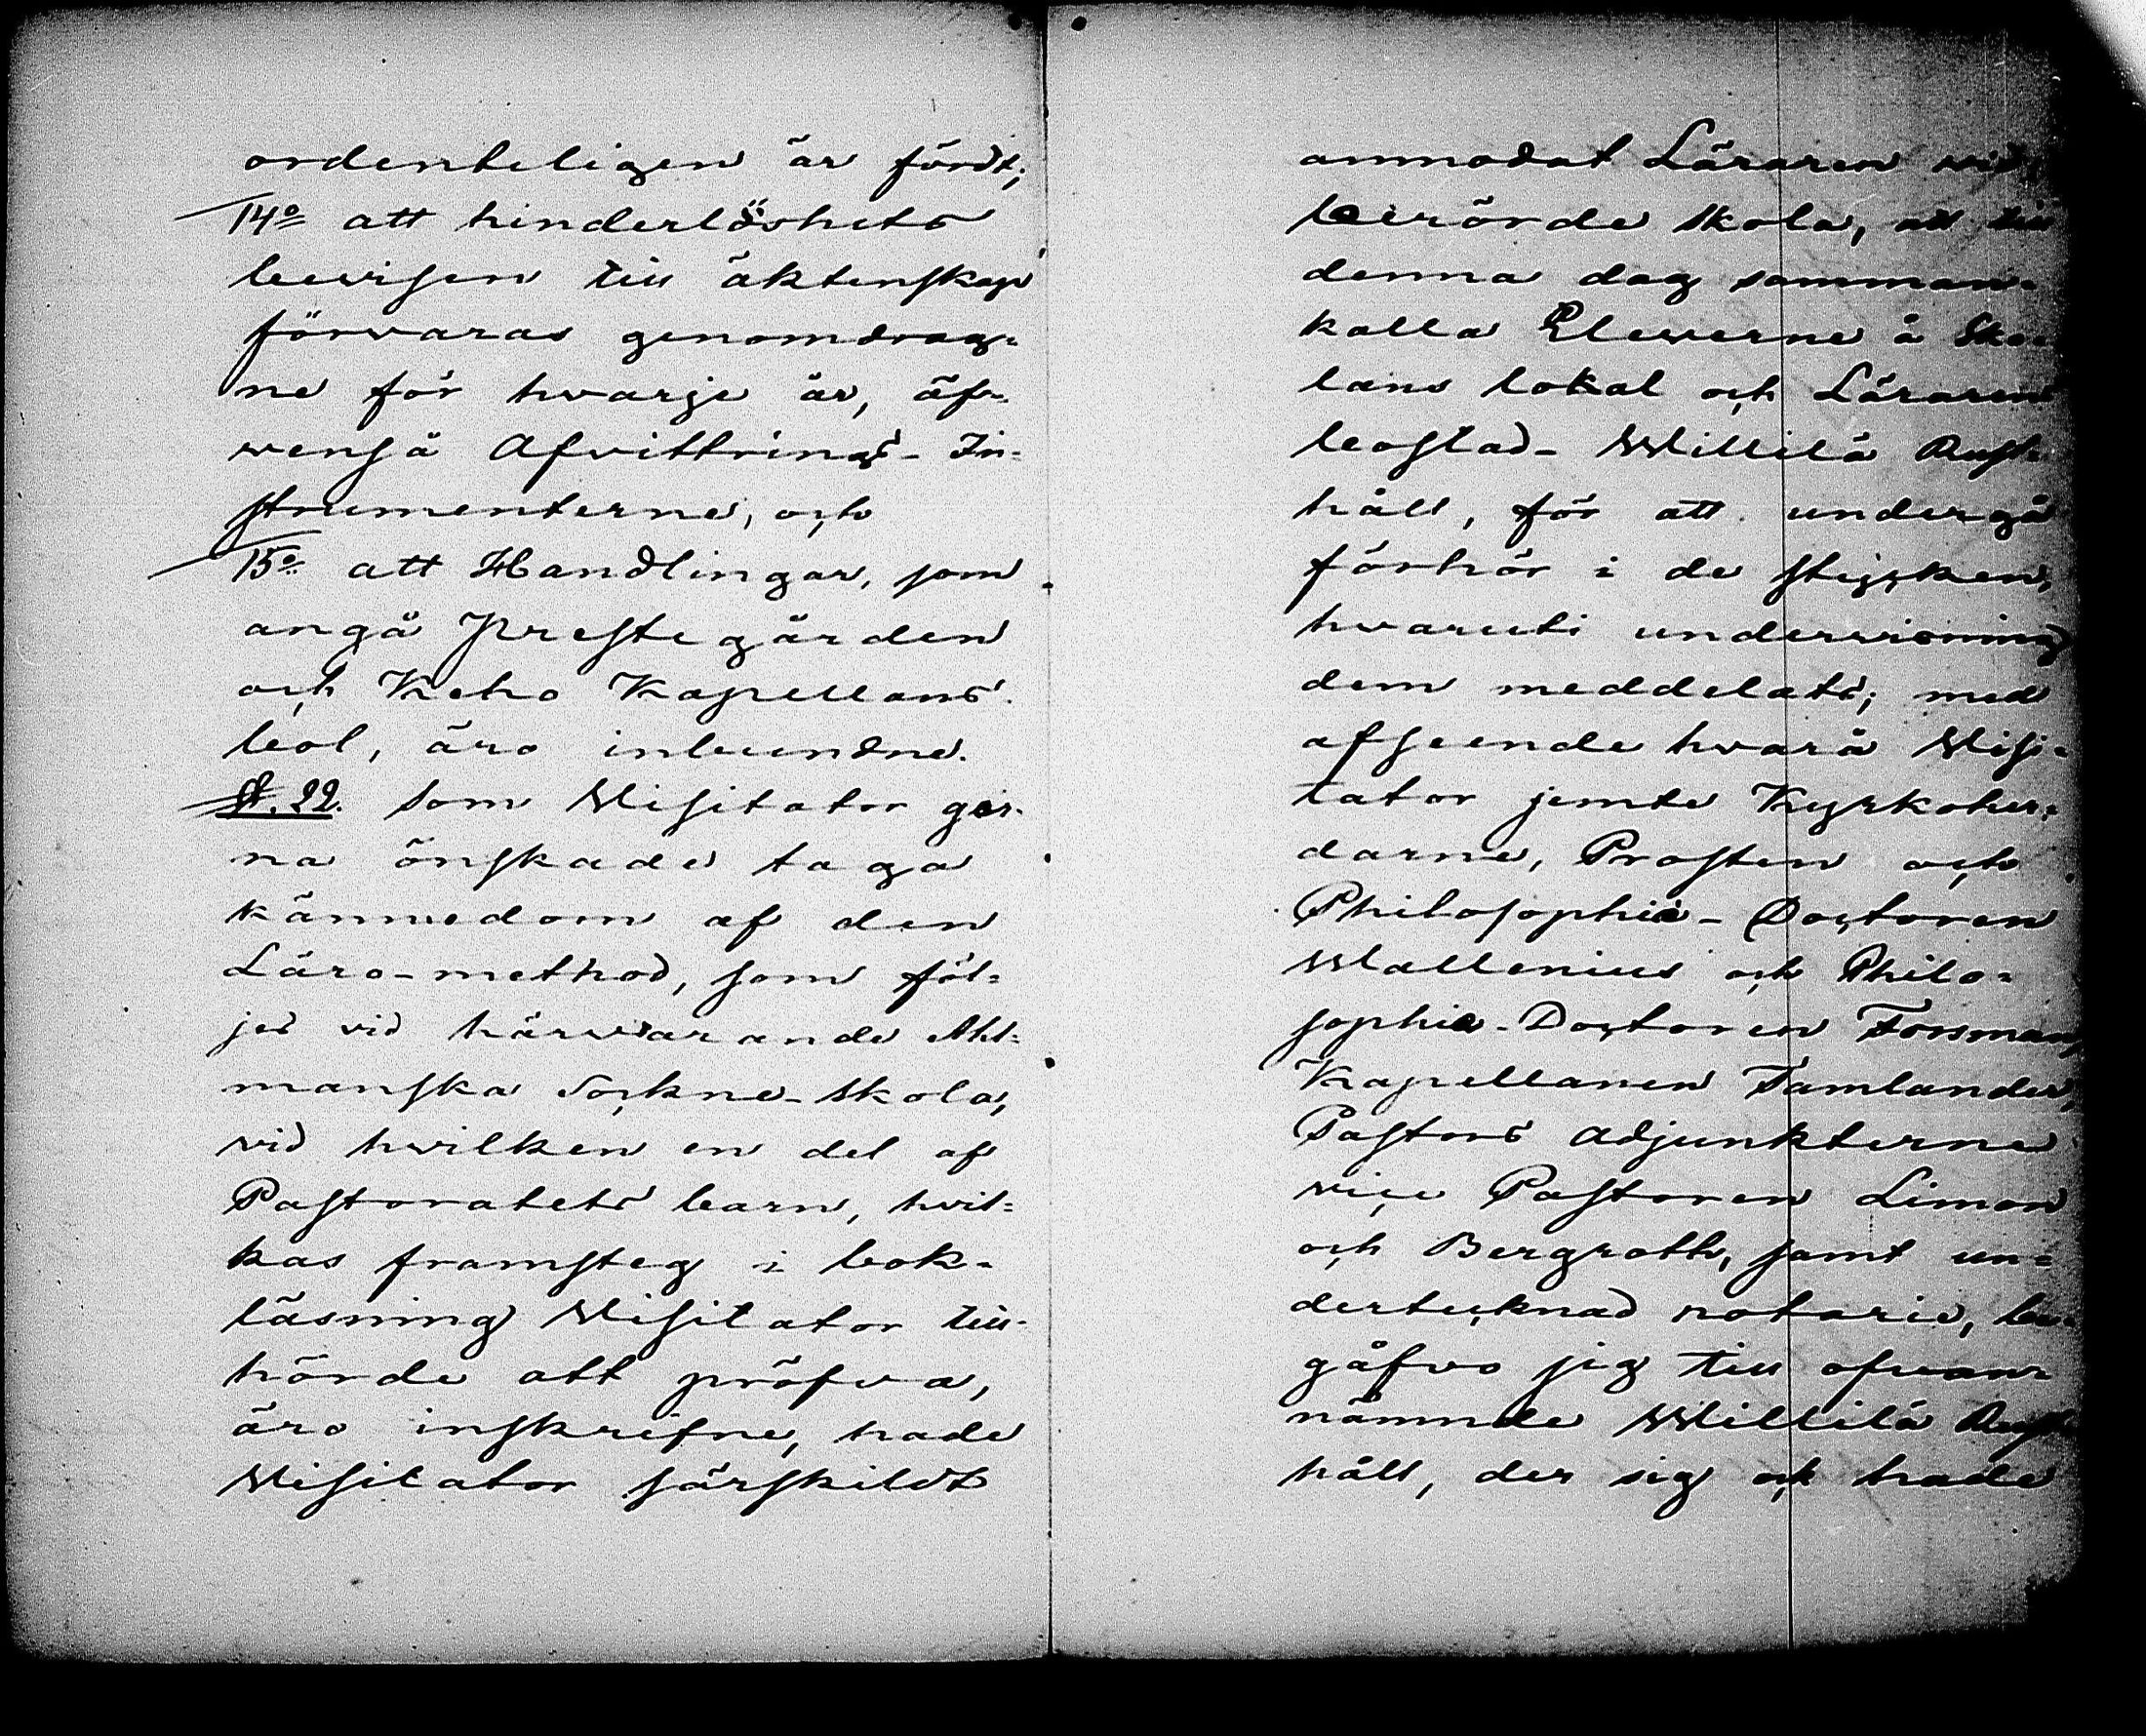 ordenteligen är fördt;
14o att hinderlöshets
bevisen till äktenskap
förvaras genomdrag=
ne för hvarje år, äf=
venså Afvittrings-In=
strumenterne, och
15o att Handlingar, som
angå Prestegården
och Keho Kapellans
bol, äro inbundne.
§. 22. Som Visitator ger=
na önskade taga
kännedom af den
Läro-method, som föl=
jes vid härvarande Ahl=
manska Sockne-skola,
vid hvilken en del af
Pastoratets barn, hvil=
kas framsteg i bok=
läsning Visitator till=
hörde att pröfva,
äro inskrifne, hade
Visitator särskildt
anmodat Läraren vid
berörde skola, att till
denna dag samman=
kalla Eleverne å Sko=
lans lokal och Lärarens
bostad - Willilä Rust=
håll, för att undergå
förhör i de stycken,
hvaruti undervisning
dem meddelats; med
afseende hvarå Visi=
tator jemte Kyrkoher=
darne, Prosten och
Philosophie-Doctoren
Wallenius och Philo=
sophie-Doctoren Forsman,
Kapellanen Tamlander,
Pastors adjunkterne
vice Pastoren Limon
och Bergroth, samt un=
dertecknad notarie, be=
gåfvo sig till ofvan=
nämnde Willilä Rust
håll, der sig ock hade